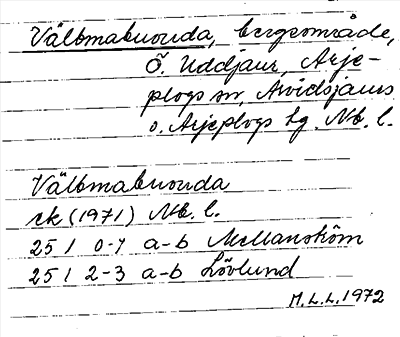 Välbmabuouda, bergsområde,
Ö. Uddjaur, Arje-
plogs sn, Arvidsjaurs
o. Arjeplogs tg. Nb. l.
Välbmabuouda
ek (1971) Nb. l.
25 I 0-1 a-b Mellanström
25 I 2-3 a-b Lövlund
M.L.L. 1972